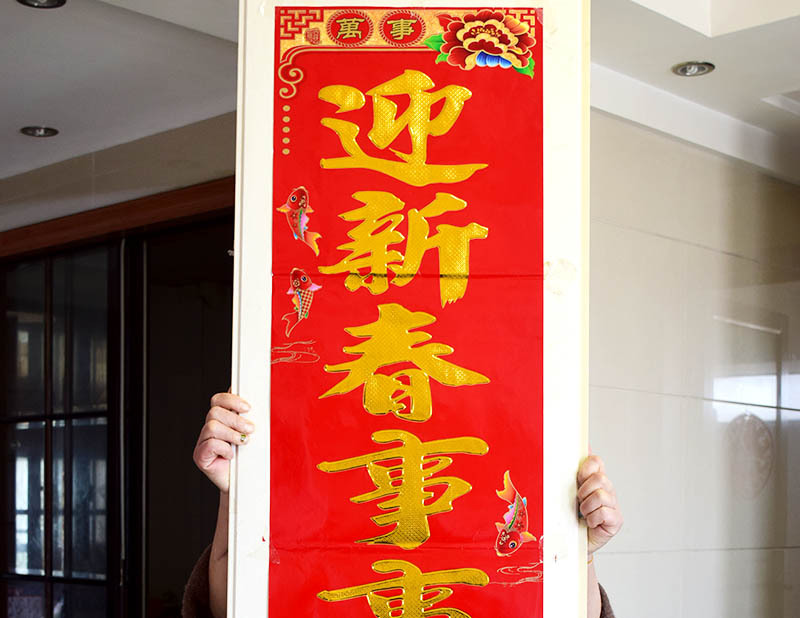 萬事
迎新春事事